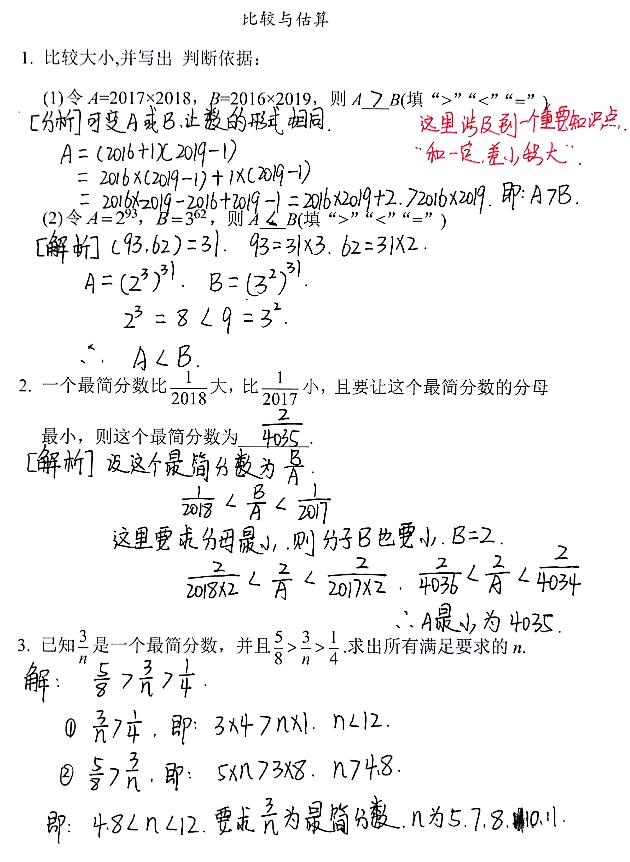 比较与估算
1. 比较大小,并写出 判断依据:
(1) 令 A=2017×2018, B=2016×2019, 则 A > B(填“>”“<”“=”)
[分析] 可变A或B.让数的形式相同.
这里涉及到一个重要知识点.
“和一定.差小积大”
A = (2016+1)(2019-1)
= 2016×(2019-1)+1×(2019-1)
= 2016×2019-2016+2019-1 = 2016×2019+2. >2016×2019. 即: A>B.
(2) 令 A=2⁹³, B=3⁶², 则 A < B(填“>”“<”“=”)
[解析] (93.62)=31. 93=31×3. 62=31×2.
A=(2³)³¹. B=(3²)³¹.
2³ = 8 < 9 = 3².
∴ A < B.
2. 一个最简分数比 1/2018 大, 比 1/2017 小, 且要让这个最简分数的分母
最小, 则这个最简分数为 2/4035.
[解析] 设这个最简分数为 B/A.
1/2018 < B/A < 1/2017
这里要求分母最小.则分子B也要小. B=2.
2/2018×2 < 2/A < 2/2017×2 . 2/4036 < 2/A < 2/4034
∴ A最小为4035.
3. 已知 3/n 是一个最简分数, 并且 5/8 > 3/n > 1/4 .求出所有满足要求的 n.
解: 5/8 > 3/n > 1/4 .
① 3/n > 1/4 . 即: 3×4 > n×1. n<12.
② 5/8 > 3/n . 即: 5×n > 3×8. n > 4.8.
即: 4.8 < n < 12. 要求 3/n 为最简分数. n为5.7.8.10.11.